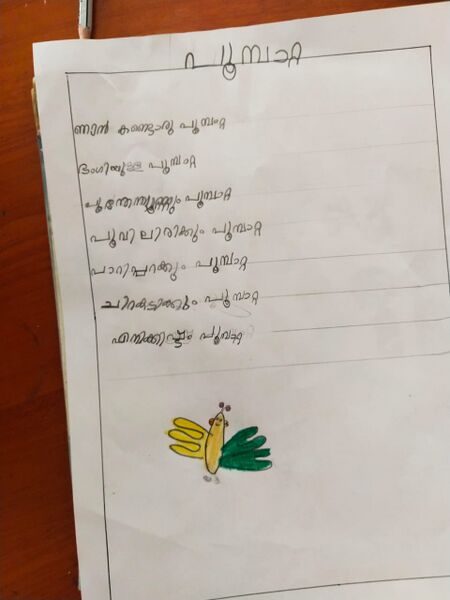 പൂമ്പാറ്റ
ഞാൻ കണ്ടൊരു പൂമ്പാറ്റ
ഭംഗിയുള്ള പൂമ്പാറ്റ
പൂന്തേനുണ്ണും പൂമ്പാറ്റ
പൂവിലിരിക്കും പൂമ്പാറ്റ
പാറിപ്പറക്കും പൂമ്പാറ്റ
ചിറകടിക്കും പൂമ്പാറ്റ
എനിക്കിഷ്ടം പൂമ്പാറ്റ